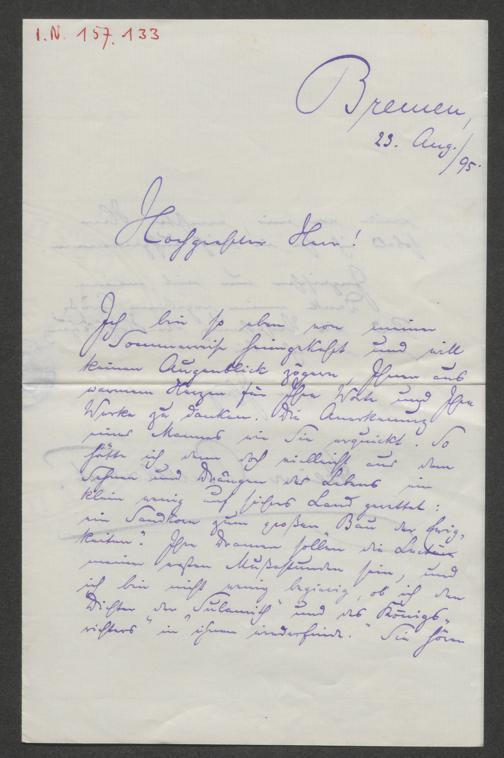 I.N. 157.133
Bremen,
23. Aug./95.
Hochgeehrter Herr!
Ich bin so eben von meiner
Sommerreise heimgekehrt und will
keinen Augenblick zögern, Ihnen aus
warmem Herzen für Ihre Worte und Ihre
Werke zu danken. Die Anerkennung
eines Mannes wie Sie erquickt. So
hätte ich denn doch vielleicht aus dem
Sehnen und Drängen des Lebens ein
klein wenig auf sichres Land gerettet:
ein „Sandkorn zum großen Bau der Ewig-
keiten." Ihre Dramen sollen die Lectüre
meiner ersten Mußestunden sein, und
ich bin nicht wenig begierig, ob ich den
Dichter der „Sulamith" und des „Königs-
richters" in ihnen wiederfinde. Sie hören